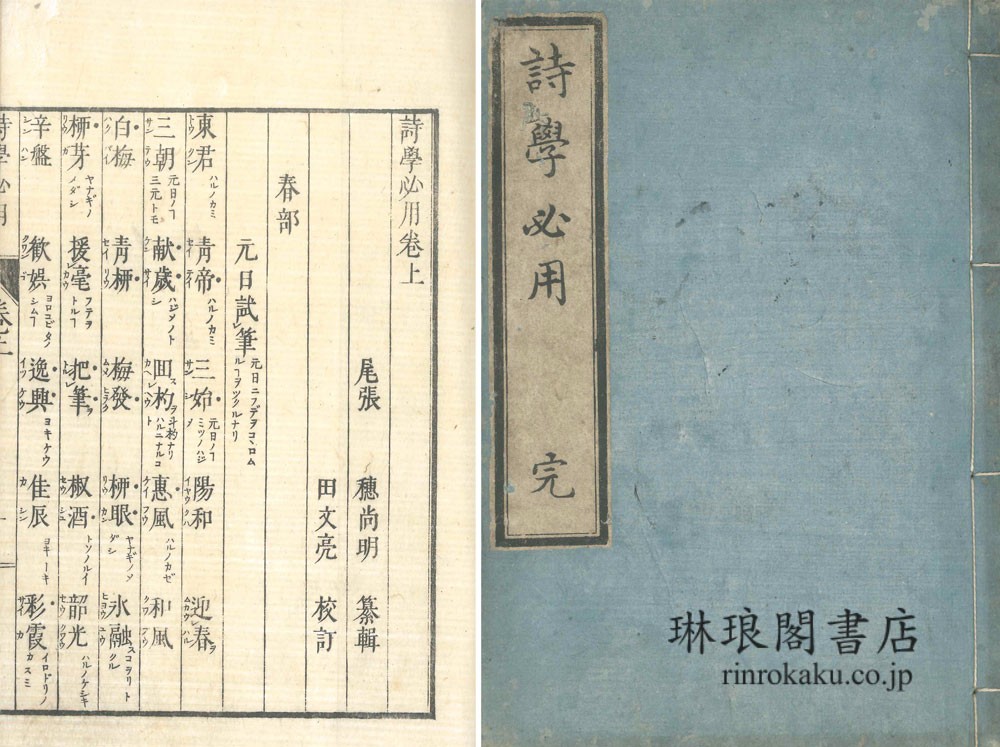 詩學必用 完
琳琅閣書店
rinrokaku.co.jp
詩學必用卷上
尾張 穗尚明 纂輯
田文亮 校訂
春部
元日試筆 元日ニフデヲコヽロムルヿヲツクルナリ
東君 ハルノカミ 青帝 ハルノカミ 三始 元日ノヿ 陽和 迎春
三朝 元日ノヿ三元トモ 献歳 ハジメノトシ 回杓 惠風 ハルノカゼ 和風
白梅 青柳 梅發 柳眼 ヤナギノメダシ 氷融
柳芽 ヤナギノメダシ 援毫 フテヲトルヿ 把筆 椒酒 トソノルイ 韶光 ハルノケシキ
辛盤 歓娯 ヨロコビタノシムヿ 逸興 ヨキケウ 佳辰 彩霞 イロドリノカスミ